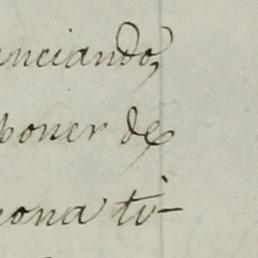 unciando,
poner de
cona ti-